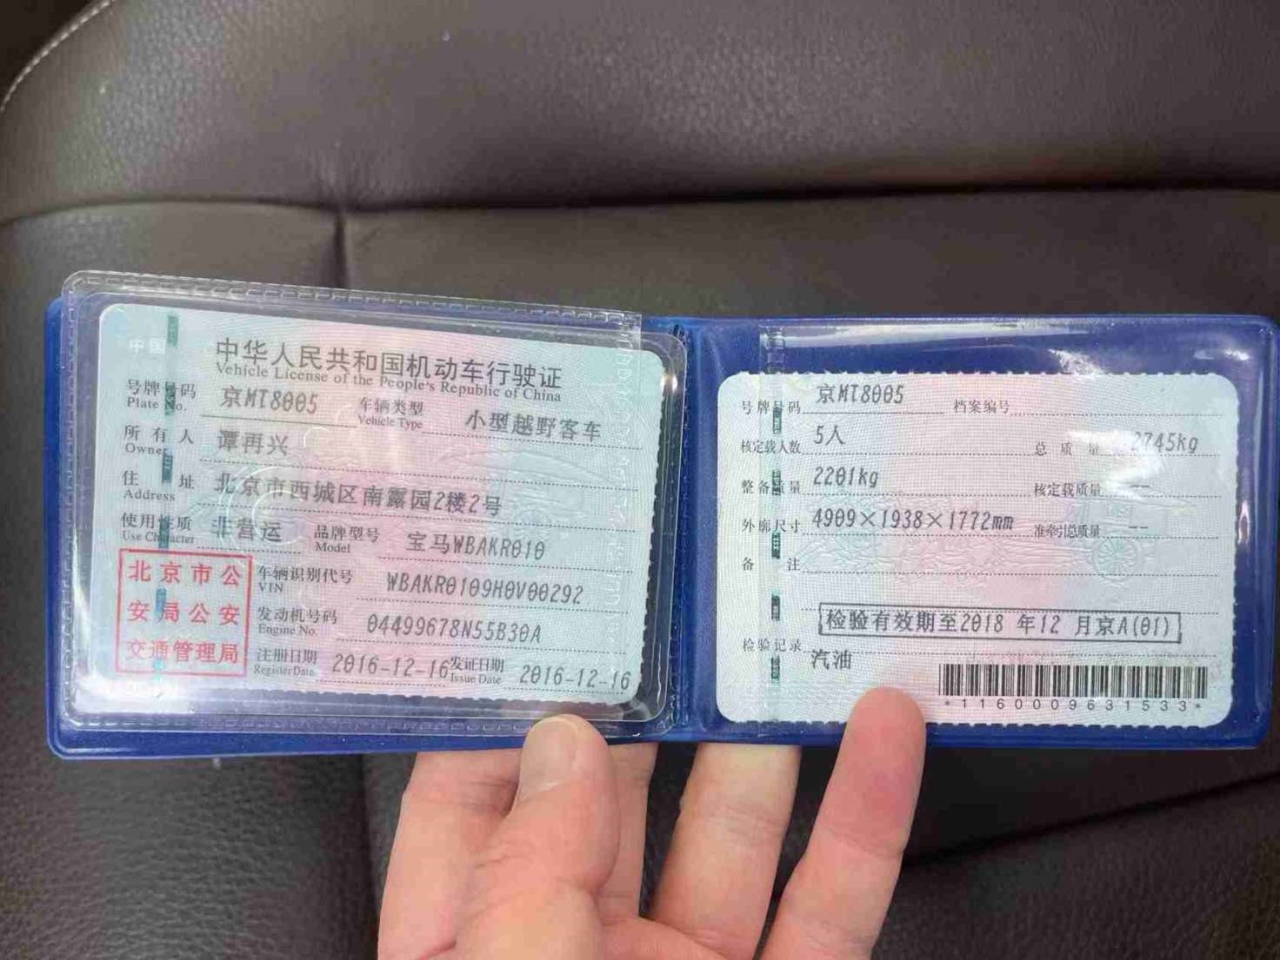 中国
中华人民共和国机动车行驶证
Vehicle License of the People's Republic of China
号牌号码 京MT8005 车辆类型 小型越野客车
Plate No. Vehicle Type
所有人 谭再兴
Owner
住址 北京市西城区南露园2楼2号
Address
使用性质 非营运 品牌型号 宝马WBAKR010
Use Character Model
北京市公
安局公安
交通管理局
车辆识别代号 WBAKR0109H0V00292
VIN
发动机号码 04499678N55B30A
Engine No.
注册日期 2016-12-16 发证日期 2016-12-16
Register Date Issue Date
号牌号码 京MT8005 档案编号
核定载人数 5人 总质量 2745kg
整备质量 2201kg 核定载质量 --
外廓尺寸 4909×1938×1772mm 准牵引总质量 --
备注
检验有效期至2018 年12 月京A(01)
检验记录
汽油
*1160009631533*